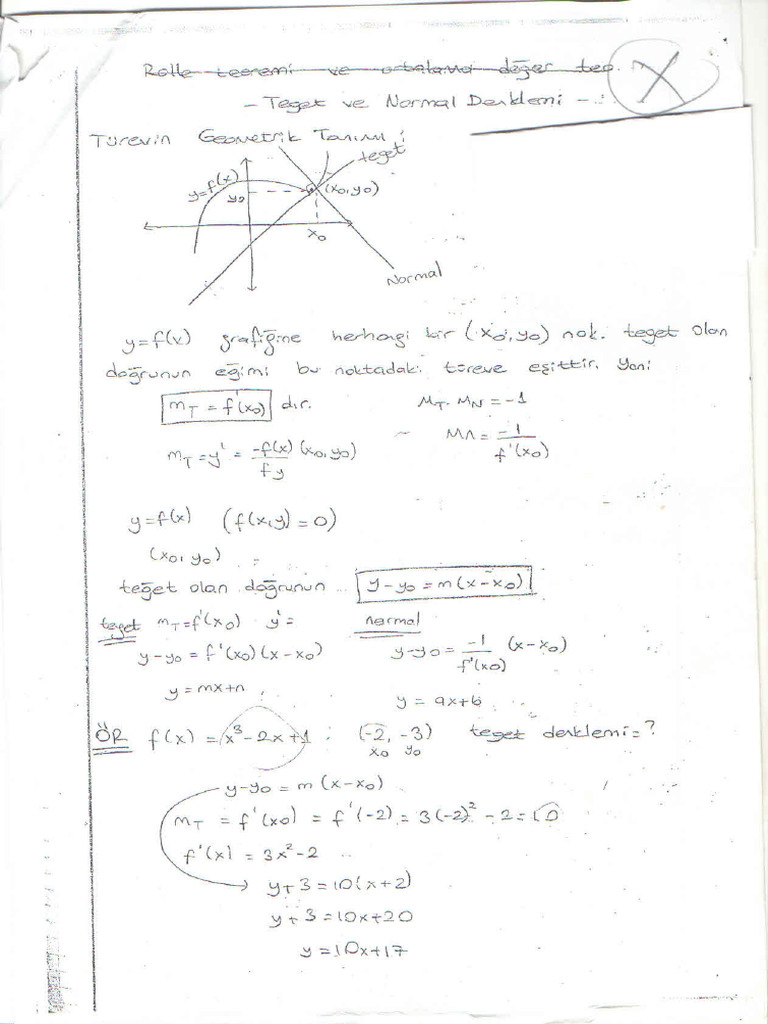 Rolle teoremi ve ortalama değer teo.
X
- Teget ve Normal Denklemi -
Türevin Geometrik Tanımı :
teget
y=f(x)
y0
(x0,y0)
x0
Normal
y=f(x) grafiğine herhangi bir (x0,y0) nok. teget olan
doğrunun eğimi bu noktadaki türeve eşittir. Yani
mT = f'(x0) dır.
MT. MN = -1
MN = -1/f'(x0)
mT = y' = -f(x)/fy (x0,y0)
y=f(x) (f(x,y)=0)
(x0, y0)
teğet olan doğrunun y-y0 = m(x-x0)
teget mT=f'(x0) y'=
normal
y-y0 = f'(x0)(x-x0)
y-y0 = -1/f'(x0) (x-x0)
y=mx+n
y = ax+b
ÖR f(x) = x³-2x+1 : (-2, -3) teget denklemi=?
x0 y0
y-y0 = m(x-x0)
mT = f'(x0) = f'(-2) = 3(-2)² - 2 = 10
f'(x) = 3x²-2
y+3 = 10(x+2)
y+3 = 10x+20
y = 10x+17